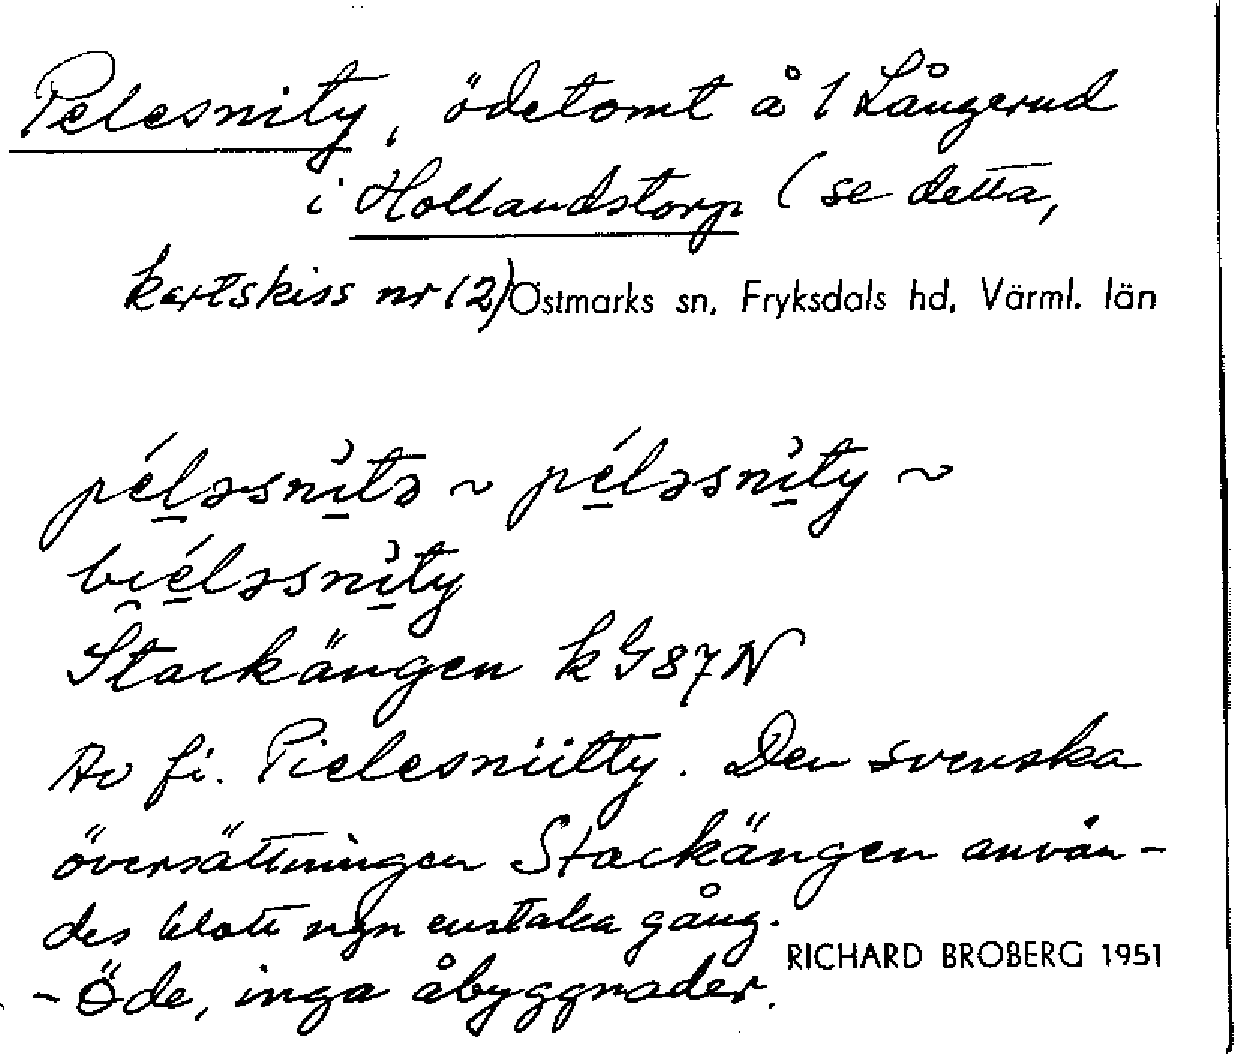 Pelesnity, ödetomt å 1 Långerud
i Hollandstorp (se detta,
kartskiss nr 12) Östmarks sn, Fryksdals hd, Värml. län
péləsnìtə ~ péləsnìty ~
bi̯éləsnìty
Stackängen k G 87 N
Av fi. Pielesniitty. Den svenska
översättningen Stackängen använ-
des blott ngn enstaka gång.
RICHARD BROBERG 1951
- Öde, inga åbyggnader.